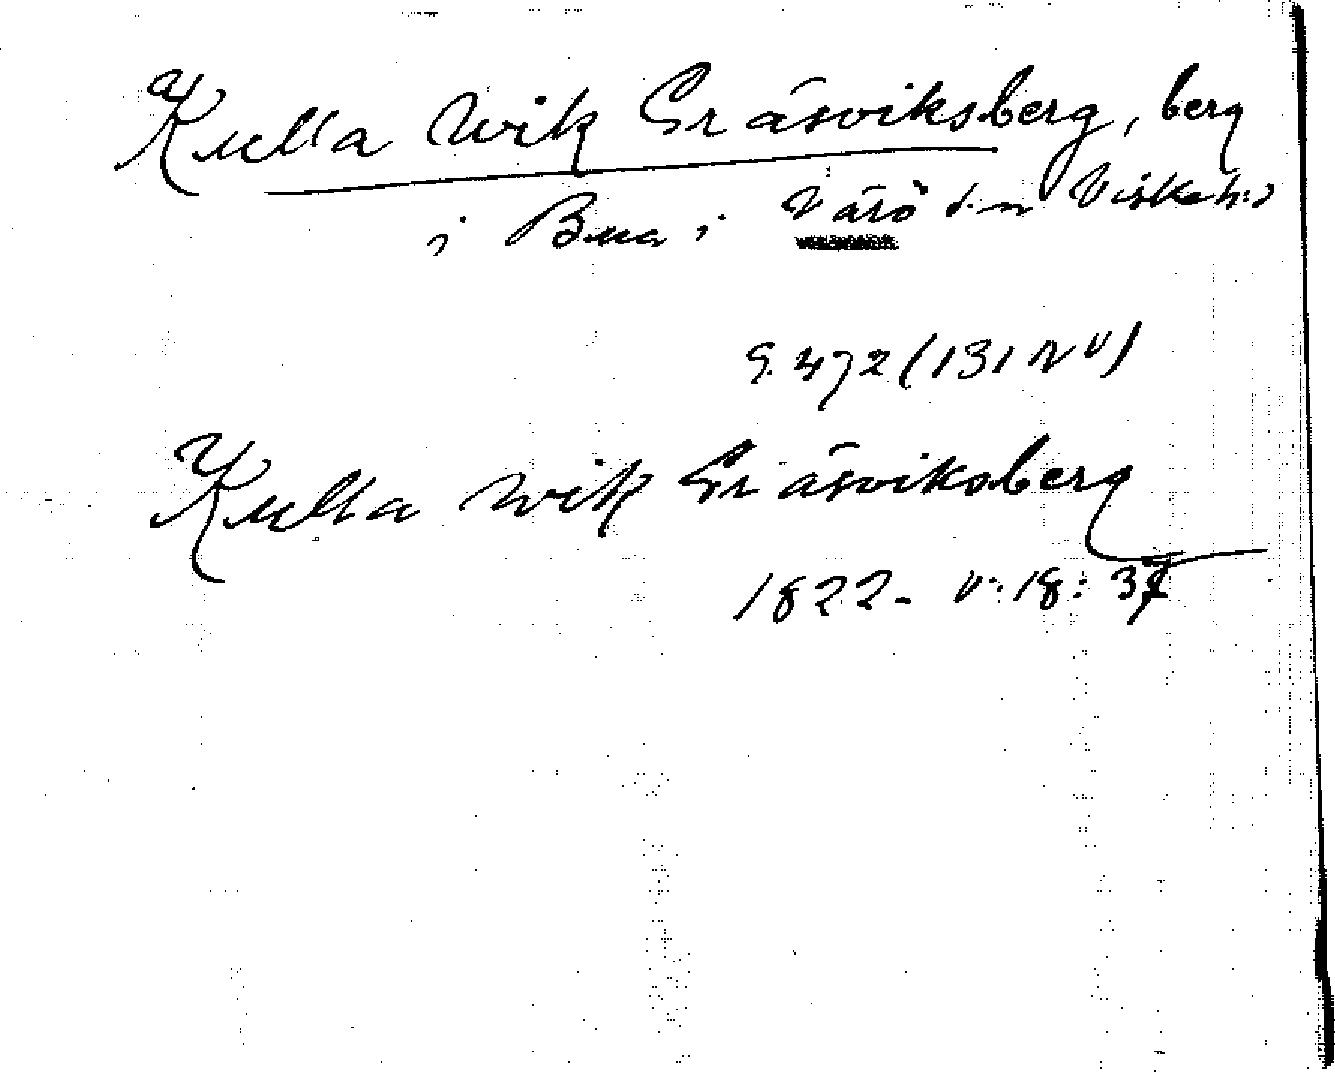 Kulla Wik Gräsviksberg, berg
i Bua i Värö s:n Viske h:d
G. 472 (131 NV)
Kulla Wik Gräsviksberg
1822 - V: 18: 37